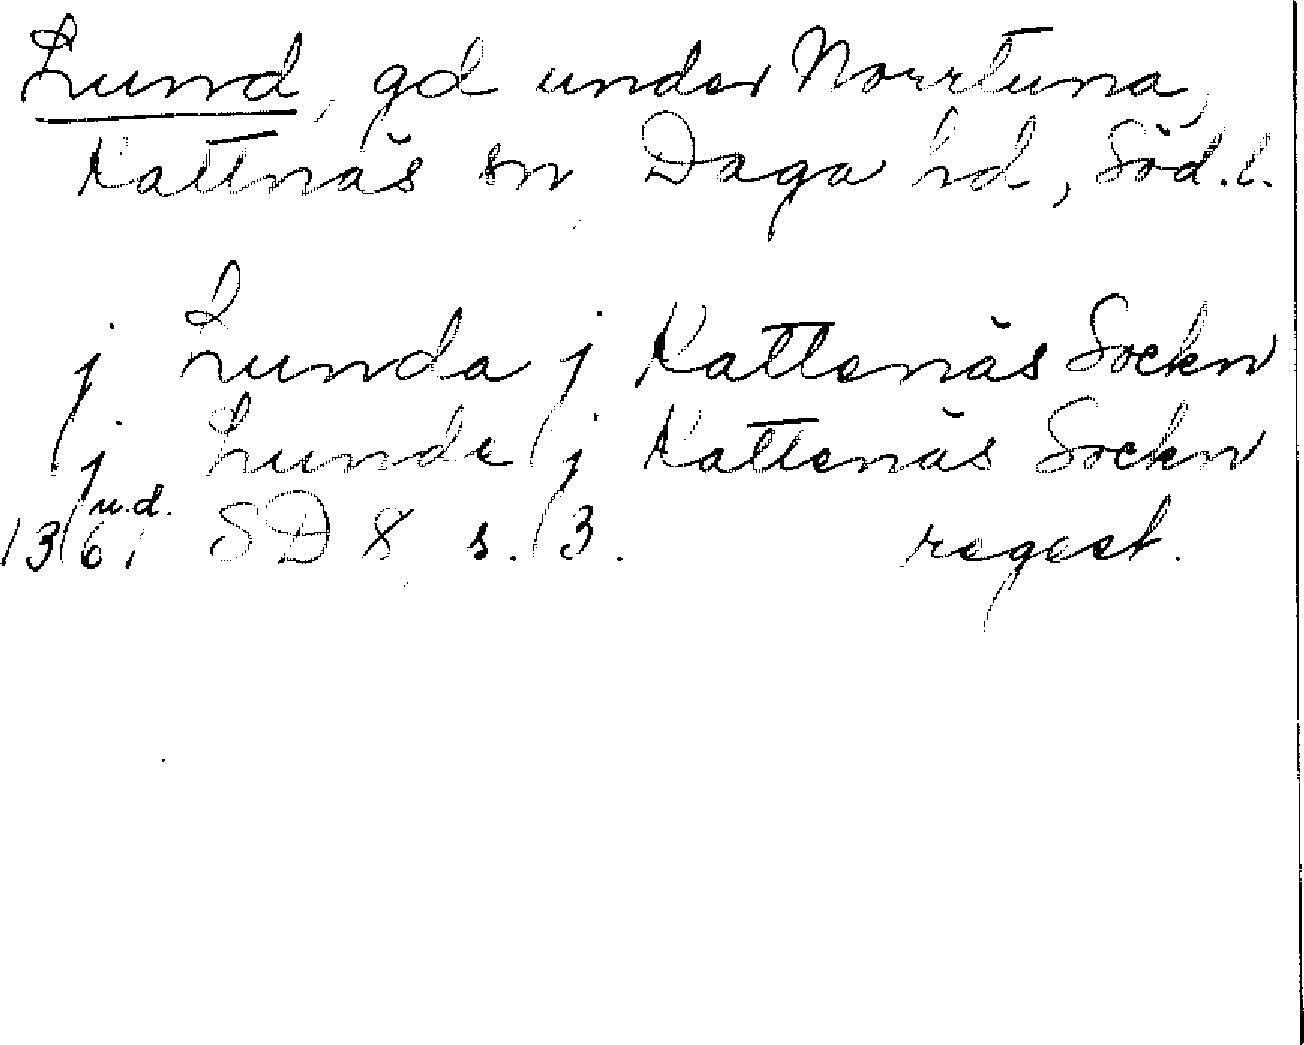 Lund, gd under Norrtuna,
Kattnäs sn Daga hd, Söd.l.
j Lunda j Kattenäs Sockn
j Lunde j Kattenäs Sockn
1361 u.d. SD 8 s. 13. regest.